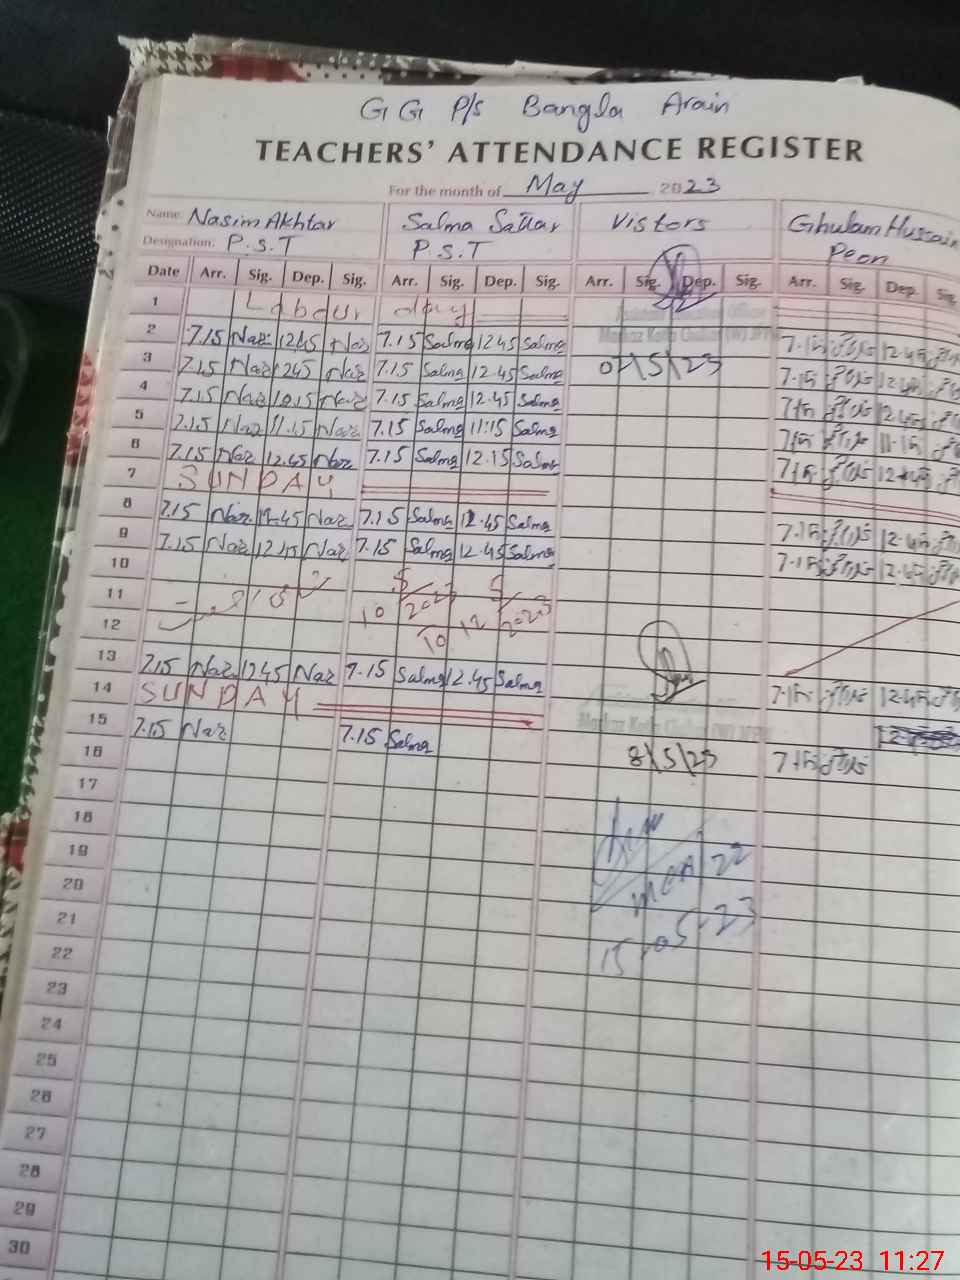 GG P/s Bangla Arain
TEACHERS' ATTENDANCE REGISTER
For the month of May 2023
Name. Nasim Akhtar Salma Sattar Vistors Ghulam Hussain
Designation. P.S.T P.S.T Peon
Date Arr. Sig. Dep. Sig. Arr. Sig. Dep. Sig. Arr. Sig. Dep. Sig. Arr. Sig. Dep. Sig.
1 Labour day
2 7.15 Naz 12.45 Naz 7.15 Salma 12.45 Salma 7.15 12.45
3 7.15 Naz 1245 Naz 7.15 Salma 12.45 Salma 02/5/23 7.15 12.45
4 7.15 Naz Naz 7.15 Salma 12.45 Salma 7.15 12.45
5 7.15 Naz 11.15 Naz 7.15 Salma 11:15 Salma 7.15 11.15
6 7.15 Naz 12.45 Naz 7.15 Salma 12.15 Salma 7.15 12.45
7 SUNDAY
8 7.15 Naz 12.45 Naz 7.15 Salma 12.45 Salma 7.15 12.45
9 7.15 Naz Naz 7.15 Salma 12.45 Salma 7.15 12.45
10
11 10 5 2023 12 5 2023
12
13 7.15 Naz 1245 Naz 7.15 Salma 12.45 Salma 7.15 12.45
14 SUNDAY
15 7.15 Naz 7.15 Salma 7.15
16 8/5/23
17
18
19
20 MEA 22
21
22 15-05-23
23
24
25
26
27
28
29
30
15-05-23 11:27